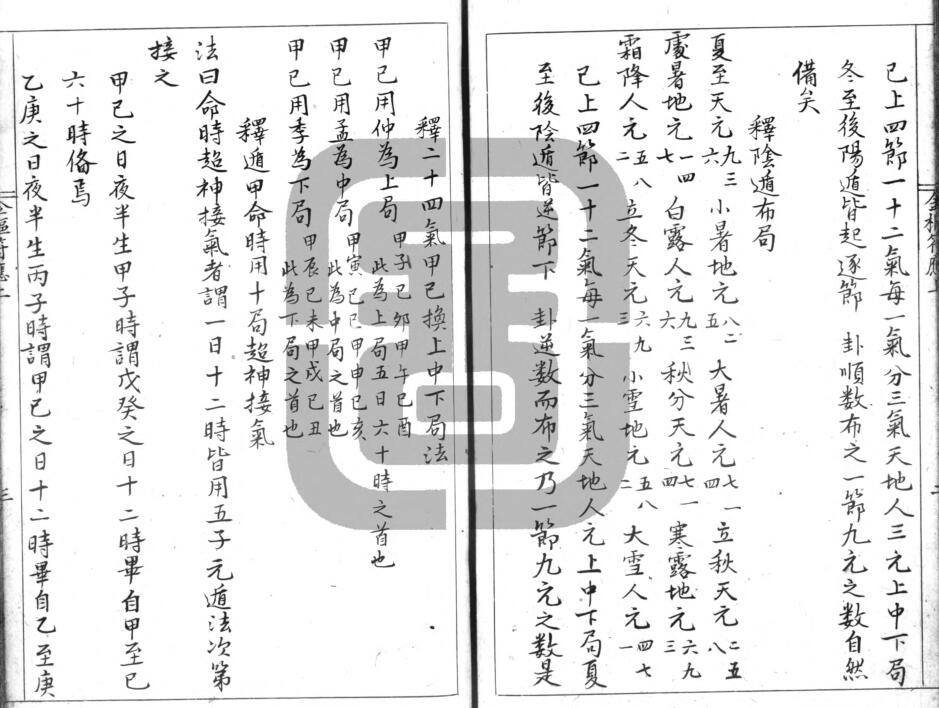 已上四節一十二氣每一氣分三氣天地人三元上中下局
冬至後陽遁皆起逐節 卦順數布之一節九元之數自然
備矣
釋陰遁布局
夏至天元九三六 小暑地元八二五 大暑人元七一四 立秋天元二五八
處暑地元一四七 白露人元九三六 秋分天元七一四 寒露地元六九三
霜降人元五八二 立冬天元六九三 小雪地元五八二 大雪人元四七一
已上四節一十二氣每一氣分三氣天地人元上中下局夏
至後陰遁皆逆節下 卦逆數而布之乃一節九元之數是
釋二十四氣甲己換上中下局法
甲己用仲為上局 甲子己卯甲午己酉此為上局五日六十時之首也
甲己用孟為中局 甲寅己巳甲申己亥此為中局之首也
甲己用季為下局 甲辰己未甲戌己丑此為下局之首也
釋遁甲命時用十局超神接氣
法曰命時超神接氣者謂一日十二時皆用五子元遁法次第
接之
甲己之日夜半生甲子時謂戊癸之日十二時畢自甲至己
六十時俻焉
乙庚之日夜半生丙子時謂甲己之日十二時畢自乙至庚
三